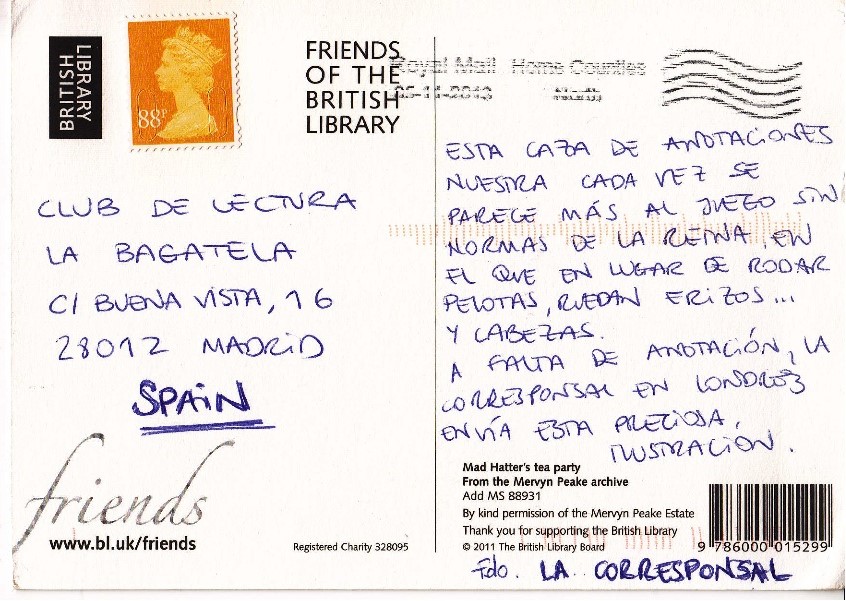 BRITISH
LIBRARY
88P
FRIENDS
OF THE
BRITISH
LIBRARY
Royal Mail Home Counties
05-11-2013 North
CLUB DE LECTURA
LA BAGATELA
C/ BUENA VISTA, 16
28012 MADRID
SPAIN
friends
www.bl.uk/friends
Registered Charity 328095
ESTA CAZA DE ANOTACIONES
NUESTRA CADA VEZ SE
PARECE MÁS AL JUEGO SIN
NORMAS DE LA REINA, EN
EL QUE EN LUGAR DE RODAR
PELOTAS, RUEDAN ERIZOS...
Y CABEZAS.
A FALTA DE ANOTACIÓN, LA
CORRESPONSAL EN LONDRES
ENVÍA ESTA PRECIOSA,
ILUSTRACIÓN.
Mad Hatter's tea party
From the Mervyn Peake archive
Add MS 88931
By kind permission of the Mervyn Peake Estate
Thank you for supporting the British Library
© 2011 The British Library Board
9 786000 015299
Fdo. LA CORRESPONSAL